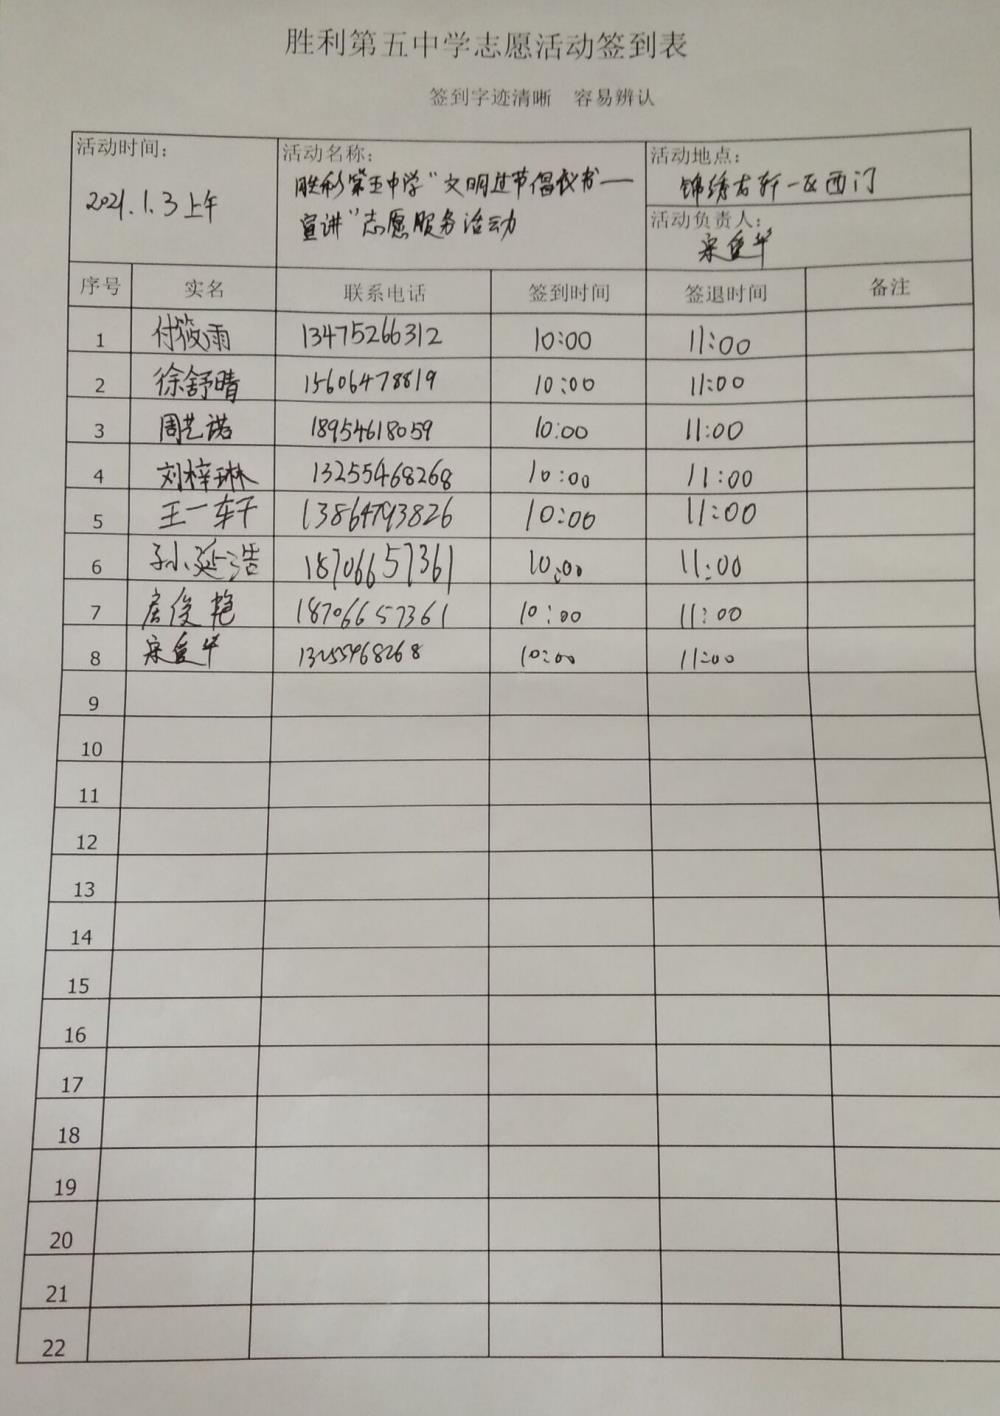 胜利第五中学志愿活动签到表
签到字迹清晰 容易辨认
活动时间：
2021.1.3上午
活动名称：
胜利第五中学“文明过节倡议书——
宣讲”志愿服务活动
活动地点：
锦绣古轩一区西门
活动负责人：
宋爱华
序号 实名 联系电话 签到时间 签退时间 备注
1 付筱雨 13475266312 10:00 11:00
2 徐舒晴 15606478819 10:00 11:00
3 周艺诺 18954618059 10:00 11:00
4 刘梓琳 13255468268 10:00 11:00
5 王一轩 13864793826 10:00 11:00
6 孙延浩 18706657361 10:00 11:00
7 房俊艳 18706657361 10:00 11:00
8 宋爱华 13255468268 10:00 11:00
9
10
11
12
13
14
15
16
17
18
19
20
21
22